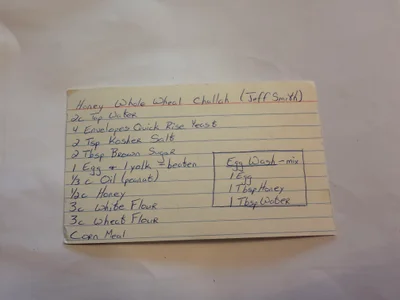 Honey Whole Wheat Challah (Jeff Smith)
2c Tap Water
4 Envelopes Quick Rise Yeast
2 Tsp Kosher Salt
2 Tbsp Brown Sugar
1 Egg + 1 yolk - beaten
1/3 c Oil (peanut)
1/2c Honey
3c White Flour
3c Wheat Flour
Corn Meal
Egg Wash - mix
1 Egg
1 Tbsp Honey
1 Tbsp Water